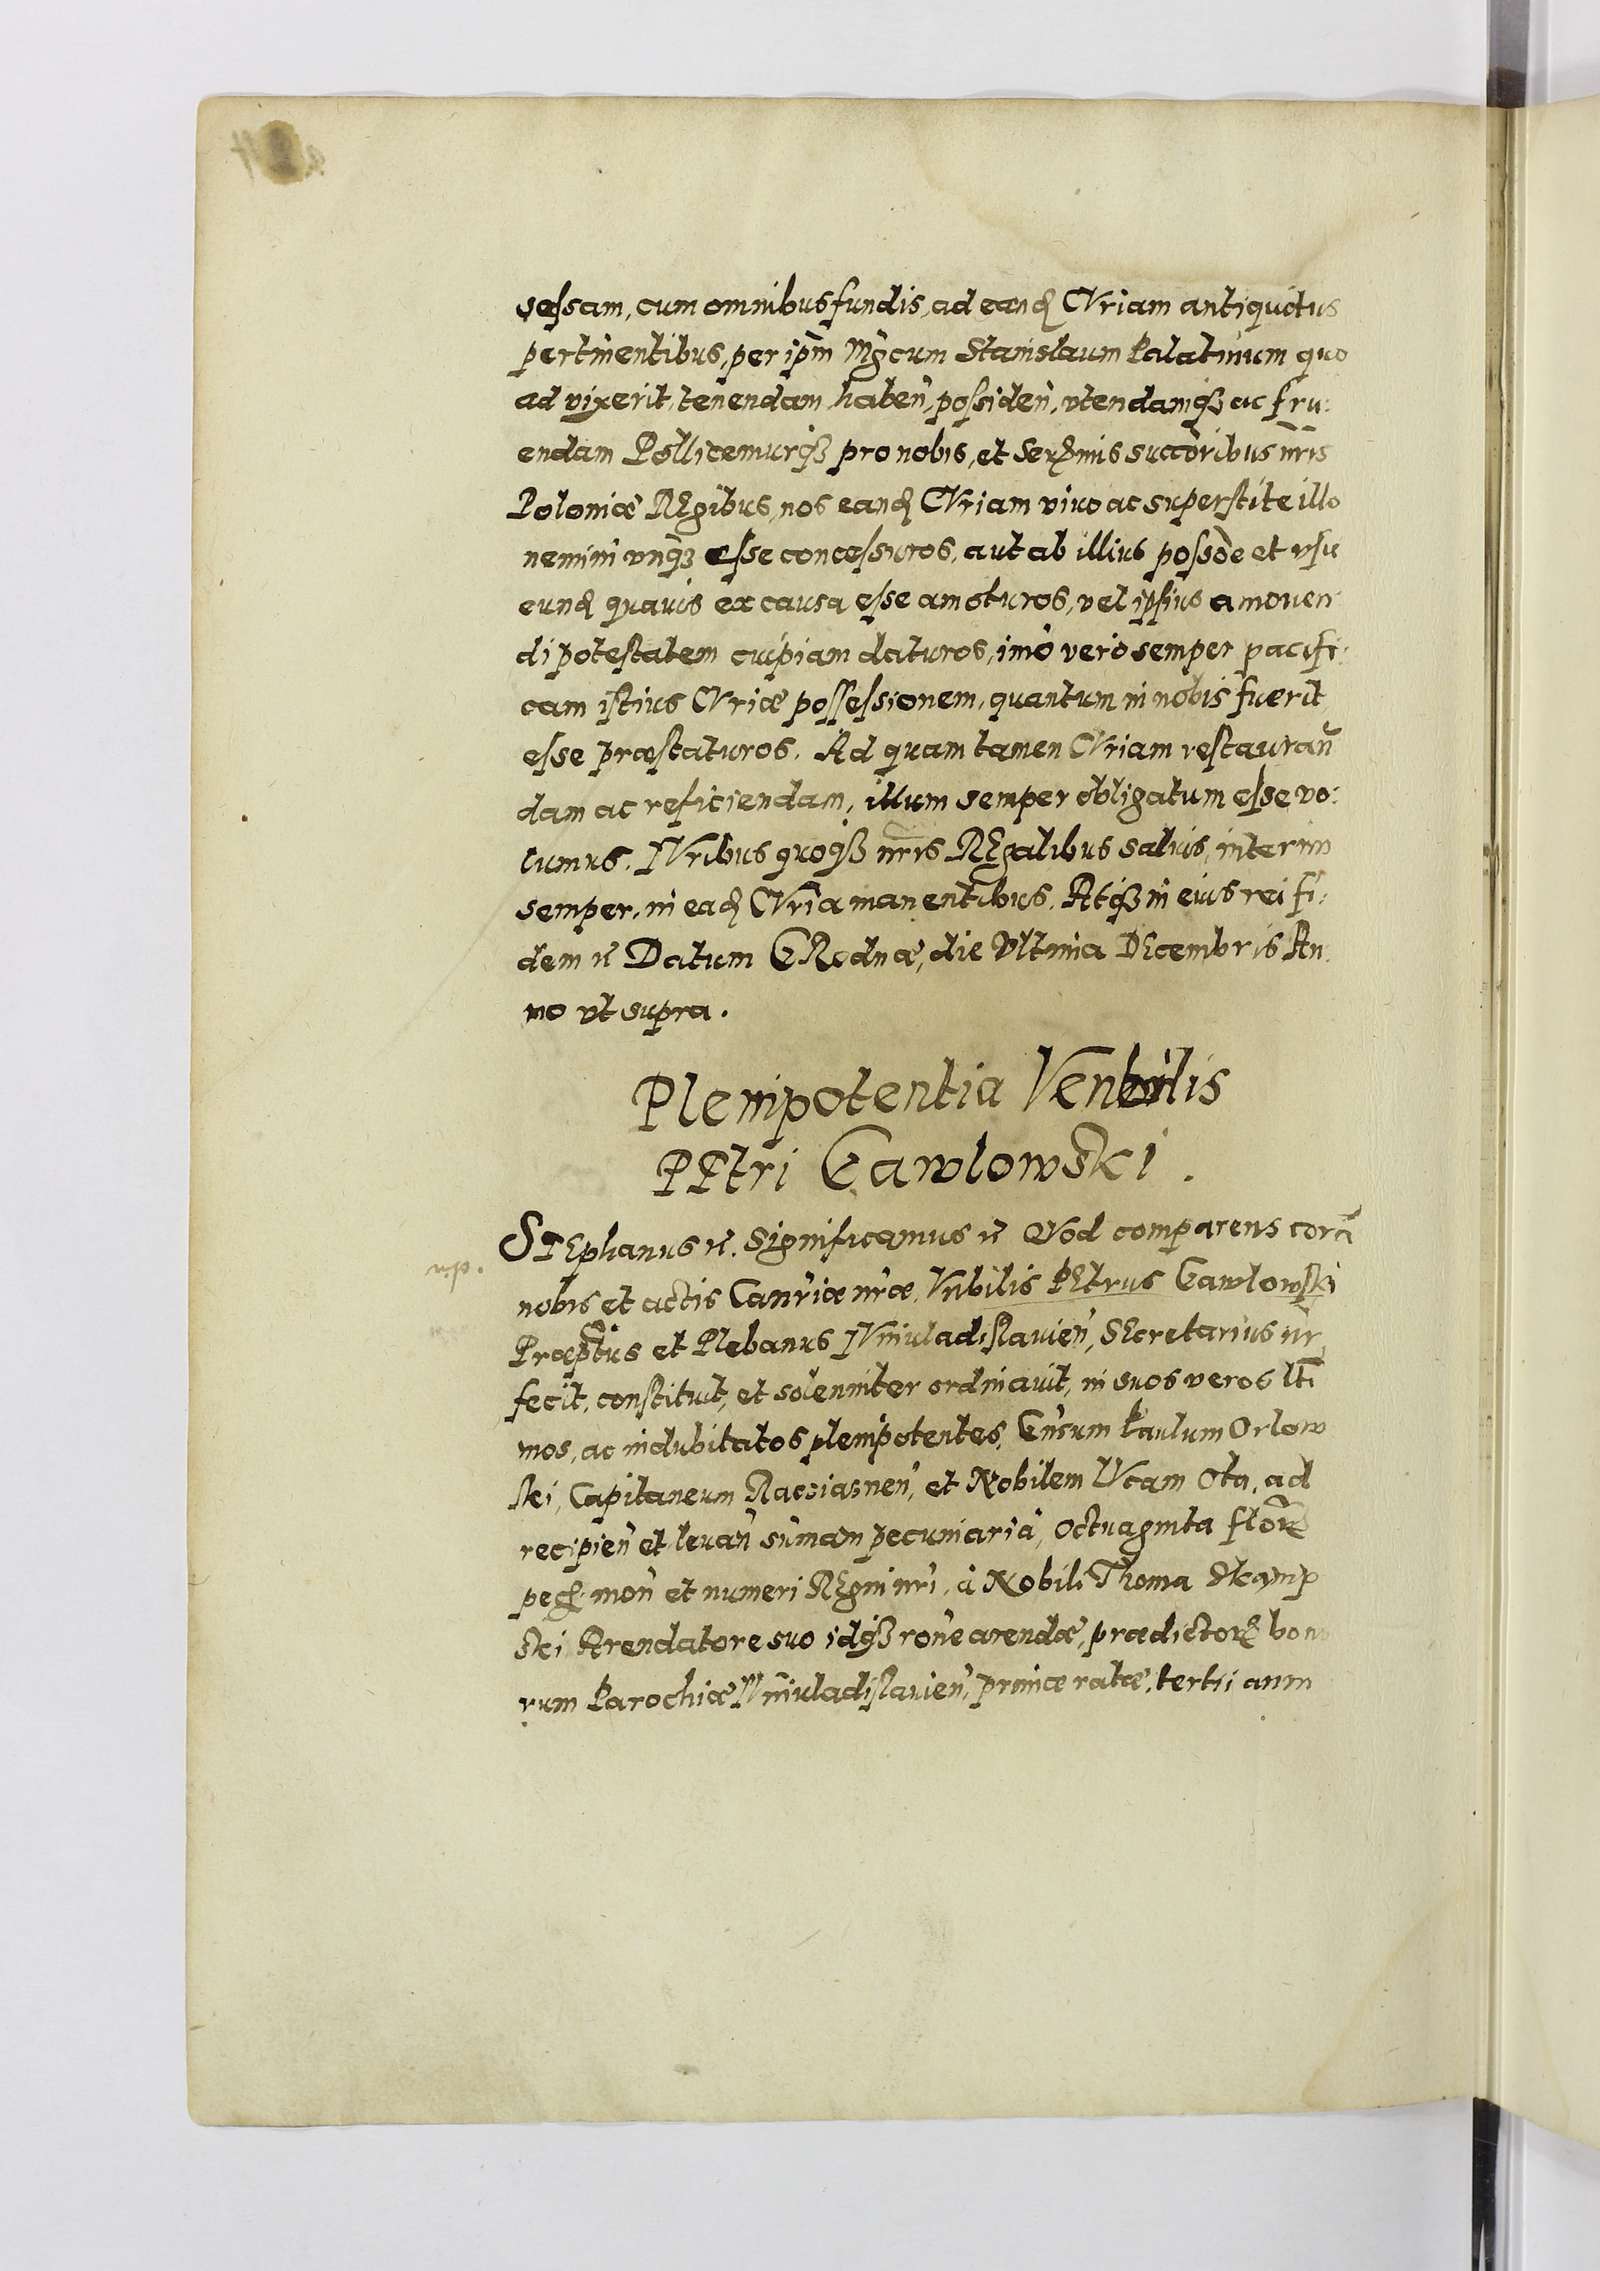 sessam, cum omnibus fundis, ad eandꝫ CUriam antiquitus
pertinentibus, per ipm̄ Mgcum Stanislaum Palatinum quo
ad vixerit, tenendam, haben̄, possiden̄, vtendamqꝫ ac fru:
endam Pollicemurqꝫ pro nobis, et Serꝫmis succoribus nr̄is
Poloniæ REgibus, nos eandꝫ CUriam viuo ac superstite illo
nemini vnqꝫ esse concessuros, aut ab illius possōe et vsu
eundꝫ quauis ex causa esse amoturos, vel ipsius amouen
di potestatem cuipiam daturos, imò vero semper pacifi:
cam istius CUriæ possessionem, quantum in nobis fuerit
esse præstaturos. Ad quam tamen CUriam restauran̄
dam ac reficiendam, illum semper obligatum esse vo:
lumus. IUribus quoqꝫ nr̄is REgalibus saluis, interim
semper, in eadꝫ CUria manentibus. Atqꝫ in eius rei fi:
dem etc Datum GRodnæ, die Vltima DEcembris An:
no vt supra.
Plenipotentia VEnbilis
PEtri Gawlowski.
STEphanus etc. Significamus etc QUod comparens corā
nobis et actis Canr̄iæ nr̄æ, Vnbilis PEtrus Gawlowski
Præptus et Plebanus IUniuladislauien̄, SEcretarius nr̄,
fecit, constituit, et solenniter ordinauit, in suos veros ltī
mos, ac indubitatos plenipotentes, Gn̄sum Paulum Orlow
ski, Capitaneum Raciasnen̄, et Nobilem LUcam Oto, ad
recipien̄ et leuan̄ sum̄am pecuniariā, octuaginta florꝝ
pecꝫ mon̄ et numeri REgni nr̄i, à Nobili Thoma
ski Arendatore suo idqꝫ ron̄e arendæ, prædictorꝝ bono
rum Parochiæ IUniuladislauien̄, primæ ratæ, tertii anni